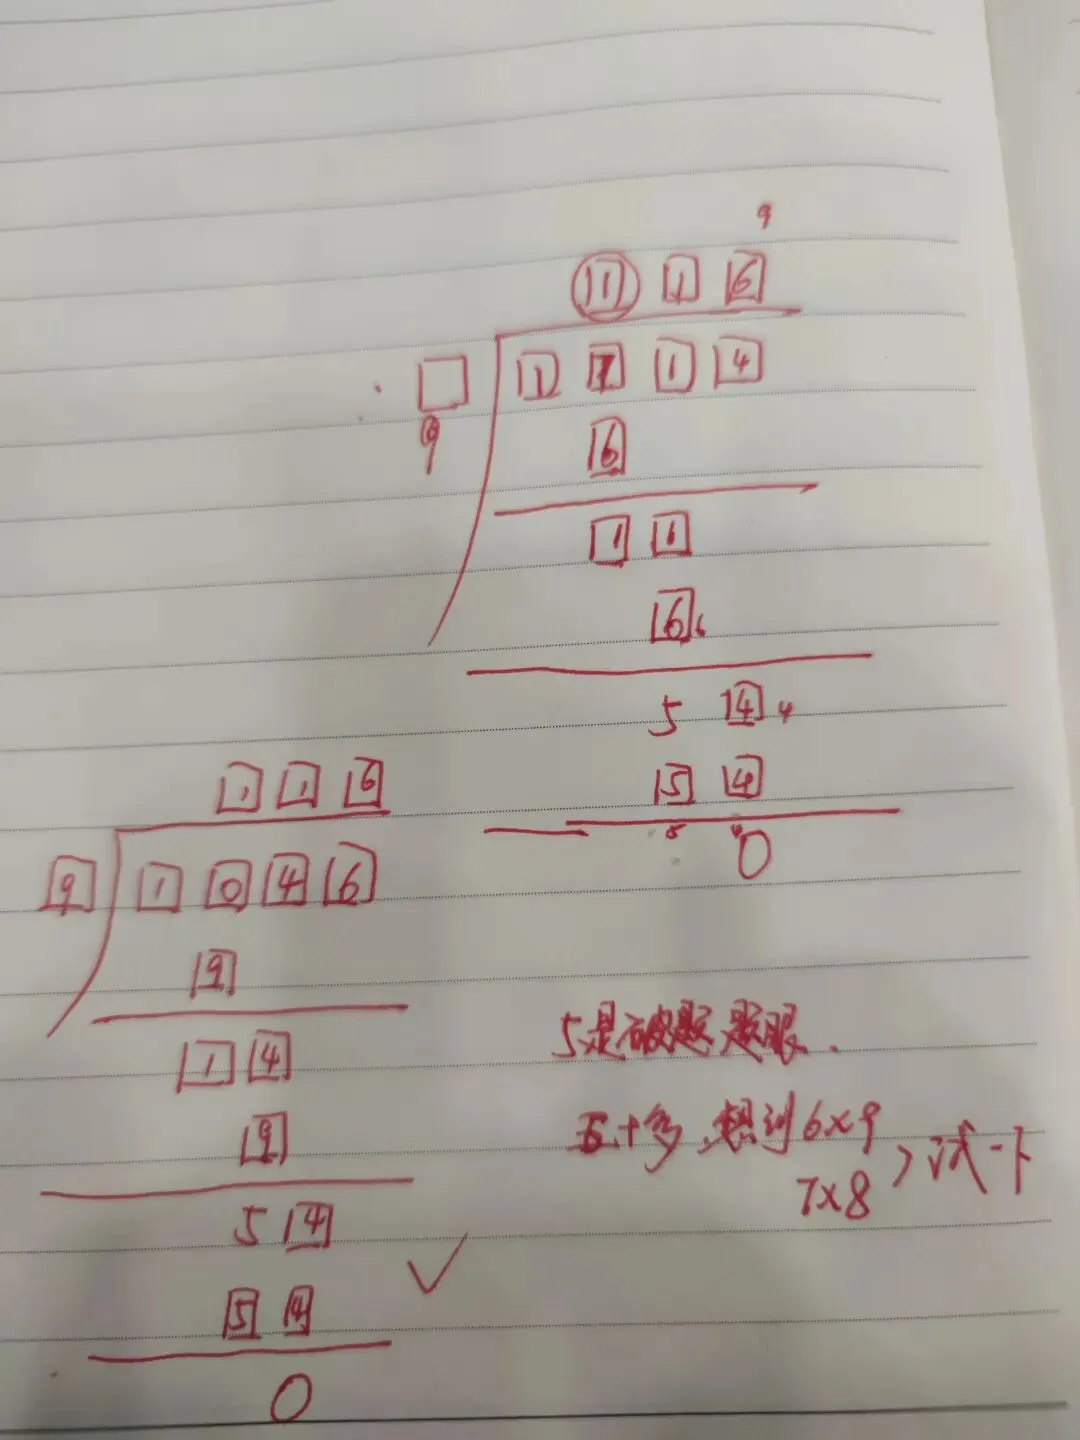 9
11 1 6
1 7 1 4
9
6
1 1
6 6
5 4 4
5 4
0
1 1 6
9 1 0 4 6
9
1 4
9
5 4
5 4
0
5是破题题眼.
五十多,想到6×9
7×8 >试一下